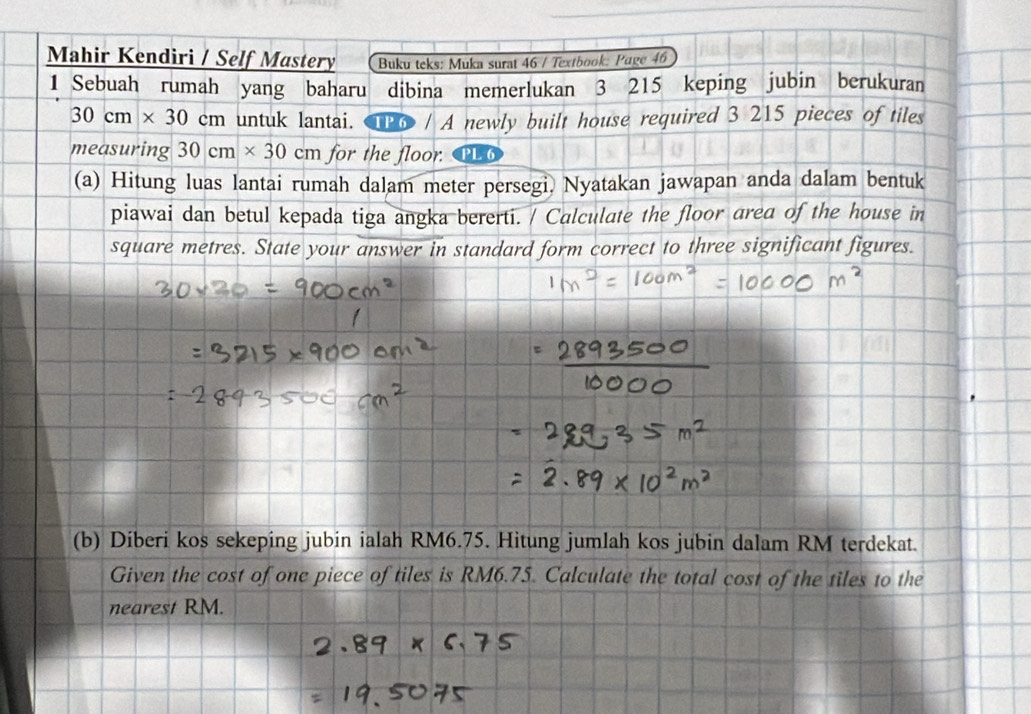 Mahir Kendiri / Self Mastery Buku teks: Muka surat 46 / Textbook: Page 46
1 Sebuah rumah yang baharu dibina memerlukan 3 215 keping jubin berukuran
30 cm × 30 cm untuk lantai. TP 6 / A newly built house required 3 215 pieces of tiles
measuring 30 cm × 30 cm for the floor. PL 6
(a) Hitung luas lantai rumah dalam meter persegi. Nyatakan jawapan anda dalam bentuk
piawai dan betul kepada tiga angka bererti. / Calculate the floor area of the house in
square metres. State your answer in standard form correct to three significant figures.
30×30 = 900cm² 1m² = 100m² = 10000 m²
= 3215 × 900 cm² = 2893500
10000
= 2893500 cm²
= 289.35 m²
= 2.89 × 10² m²
(b) Diberi kos sekeping jubin ialah RM6.75. Hitung jumlah kos jubin dalam RM terdekat.
Given the cost of one piece of tiles is RM6.75. Calculate the total cost of the tiles to the
nearest RM.
2.89 × 6.75
= 19.5075